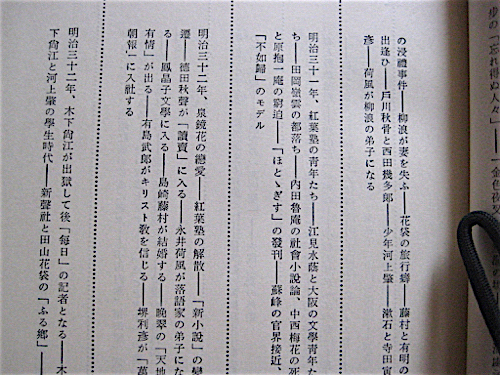 歩の「つれ
の浸禮事件——柳浪が妻を失ふ——花袋の旅行癖——藤村と有明の
出逢ひ——戸川秋骨と西田幾多郎——少年河上肇——漱石と寺田寅
彦——荷風が柳浪の弟子になる
明治三十一年、紅葉塾の青年たち——江見水蔭と大阪の文學青年た
ち——田岡嶺雲の部落ち——内田魯庵の社會小説論、中西梅花の死
と原抱一庵の窮迫——「ほとゝぎす」の發刊——蘇峰の官界接近、
「不如歸」のモデル
明治三十二年、泉鏡花の戀愛——紅葉塾の解散——「新小説」の變
遷——德田秋聲が「讀賣」に入る——永井荷風が落語家の弟子にな
る——鳳晶子文學に入る——島崎藤村が結婚する——晩翠の「天地
有情」が出る——有島武郎がキリスト敎を信じる——堺利彦が「萬
朝報」に入社する
明治三十二年、木下尙江が出獄して後「每日」の記者となる——木
下尙江と河上肇の學生時代——新聲社と田山花袋の「ふる鄕」——